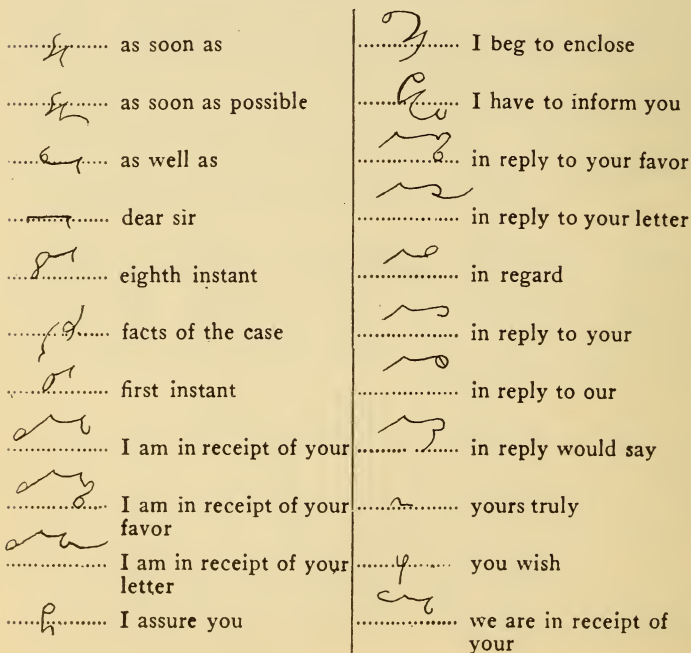 as soon as
as soon as possible
as well as
dear sir
eighth instant
facts of the case
first instant
I am in receipt of your
I am in receipt of your
favor
I am in receipt of your
letter
I assure you
I beg to enclose
I have to inform you
in reply to your favor
in reply to your letter
in regard
in reply to your
in reply to our
in reply would say
yours truly
you wish
we are in receipt of
your